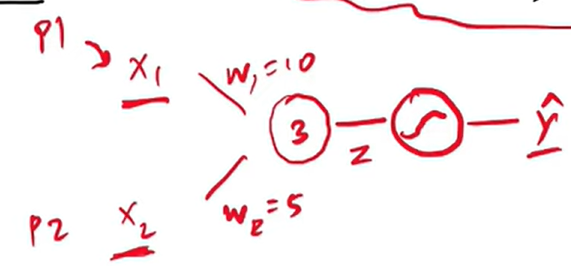 P1
x₁
w₁=10
3
z
ŷ
P2
x₂
w₂=5